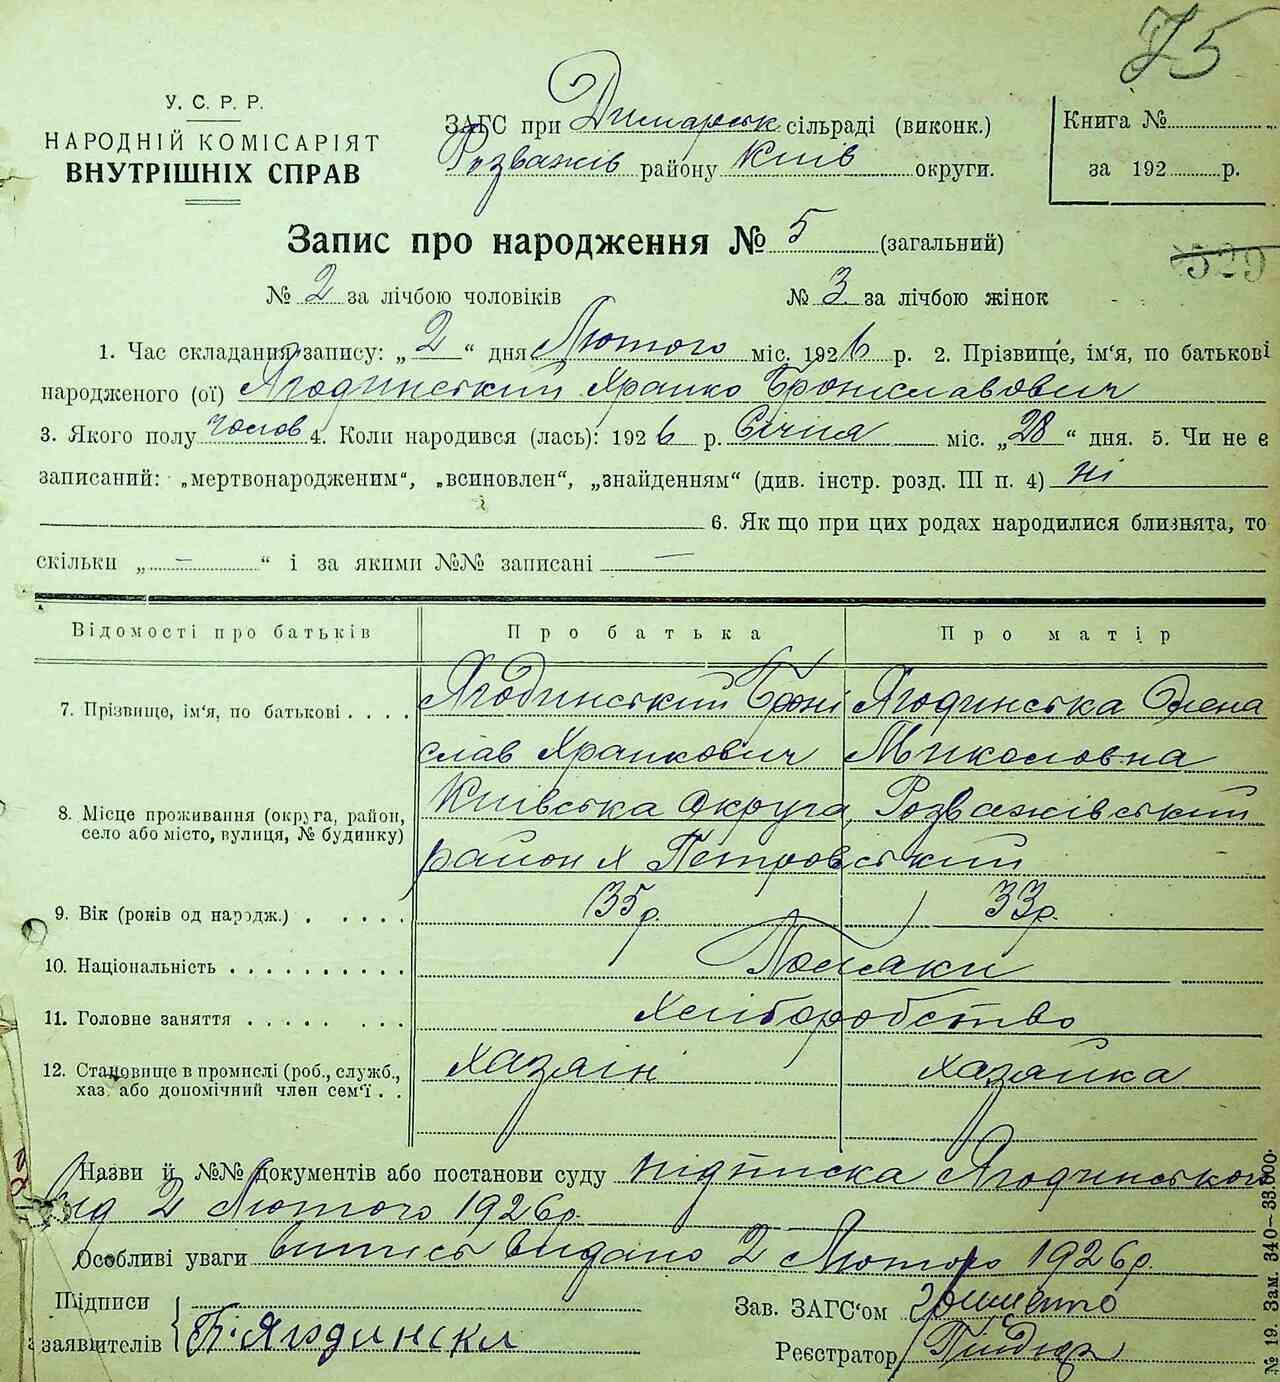 75
У. С. Р. Р.
НАРОДНІЙ КОМІСАРІЯТ
ВНУТРІШНІХ СПРАВ
ЗАГС при Димарськ. сільраді (виконк.)
Розважів району Київ округи.
Книга №
за 192 р.
Запис про народження № 5 (загальний)
529
№ 2 за лічбою чоловіків № 3 за лічбою жінок
1. Час складання запису: „ 2 “ дня Лютого міс. 1926 р. 2. Прізвище, ім'я, по батькові
народженого (ої) Ягодинський Хранко Броніславович
3. Якого полу чолов 4. Коли народився (лась): 1926 р. Січня міс. „28“ дня. 5. Чи не є
записаний: „мертвонародженим“, „всиновлен“, „знайденням“ (див. інстр. розд. III п. 4) ні
6. Як що при цих родах народилися близнята, то
скільки „ — “ і за якими №№ записані —
Відомості про батьків Про батька Про матір
7. Прізвище, ім'я, по батькові . . . . Ягодинський Броні Ягодинська Олена
слав Хранкович Миколовна
8. Місце проживання (округа, район, село або місто, вулиця, № будинку) Київська округа, Розважівський
район х Петровський
9. Вік (років од народж.) . . . . . 35р. 33р.
10. Національність . . . . . . . . . . Поляки
11. Головне заняття . . . . . . . . Хліборобство
12. Становище в промислі (роб., служб., хаз. або допомічний член сем'ї . . хазяін хазяйка
Назви й №№ документів або постанови суду підписка Ягодинського
від 2 Лютого 1926р.
Особливі уваги випись видано 2 Лютого 1926р.
Підписи
заявителів Б. Ягодински
Зав. ЗАГС'ом
Реєстратор
№ 19. Зам. 340—33.000.